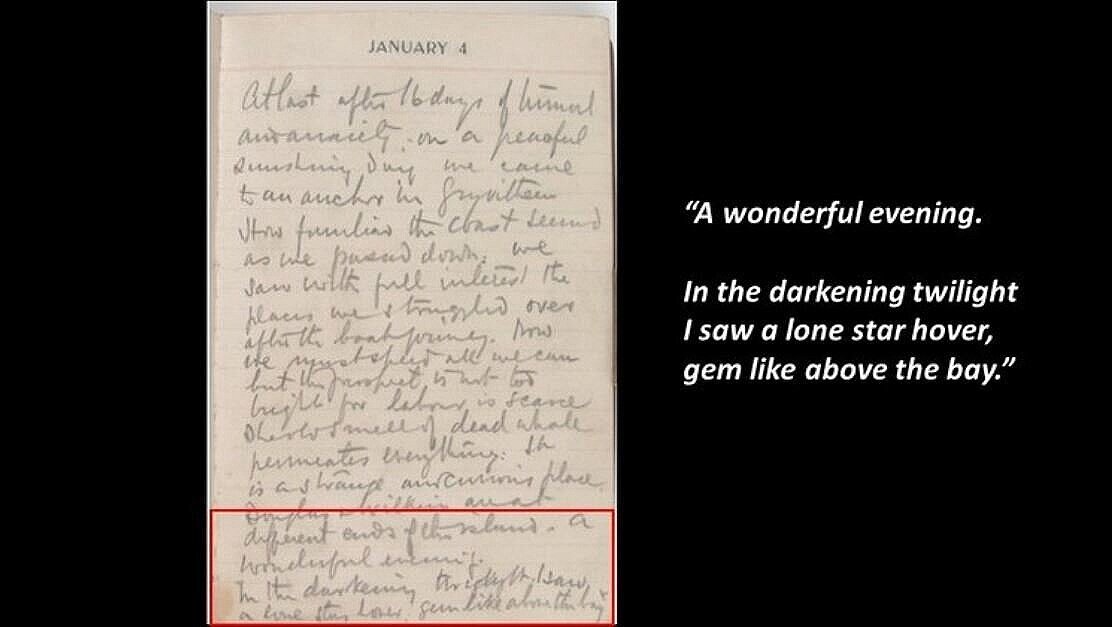 JANUARY 4
At last after 16 days of turmoil
and anxiety, on a peaceful
sunshiny day we came
to an anchor in Gryvitken
How familiar the coast seemed
as we passed down: we
saw with full interest the
places we struggled over
after the boat journey. Now
we must speed all we can
but the prospect is not too
bright for labour is scarce
The old smell of dead whale
permeates everything. It
is a strange and curious place.
Douglas & Wilkins are at
different ends of the island. A
wonderful evening.
In the darkening twilight I saw
a lone star hover, gem like above the bay
“A wonderful evening.
In the darkening twilight
I saw a lone star hover,
gem like above the bay.”